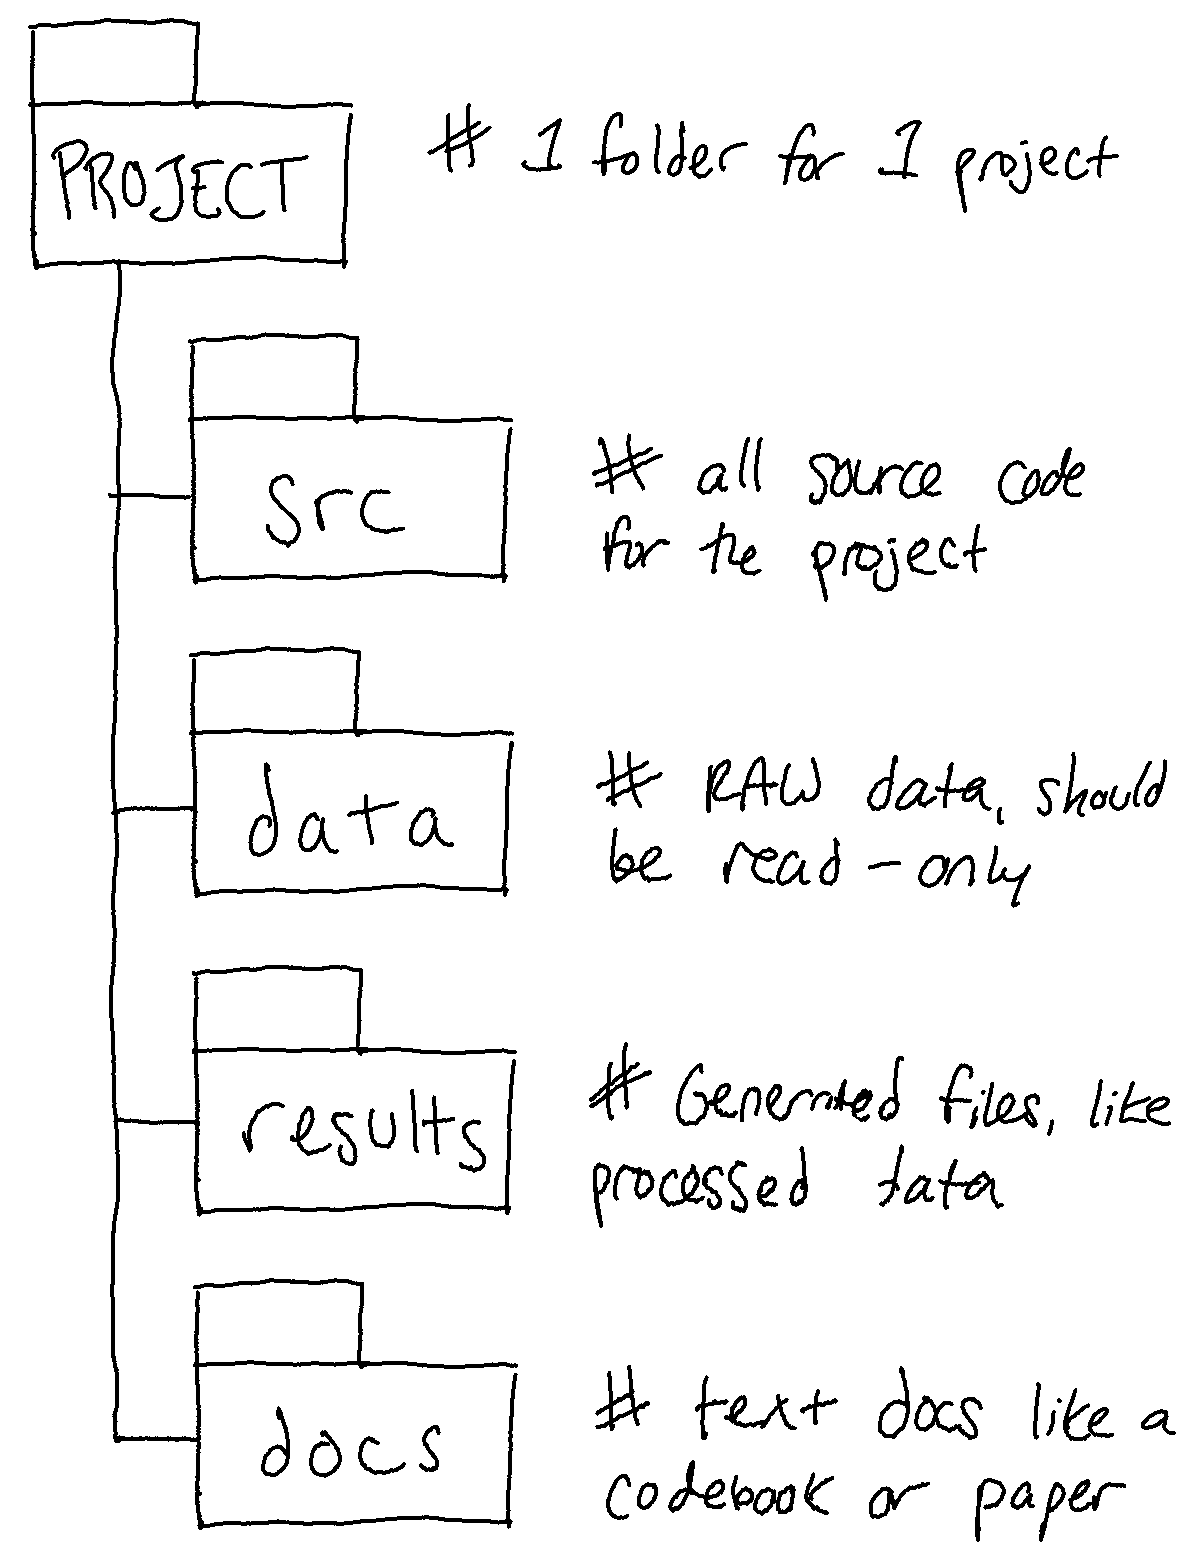 PROJECT
# 1 folder for 1 project
src
# all source code
for the project
data
# RAW data, should
be read-only
results
# Generated files, like
processed tata
docs
# text docs like a
codebook or paper